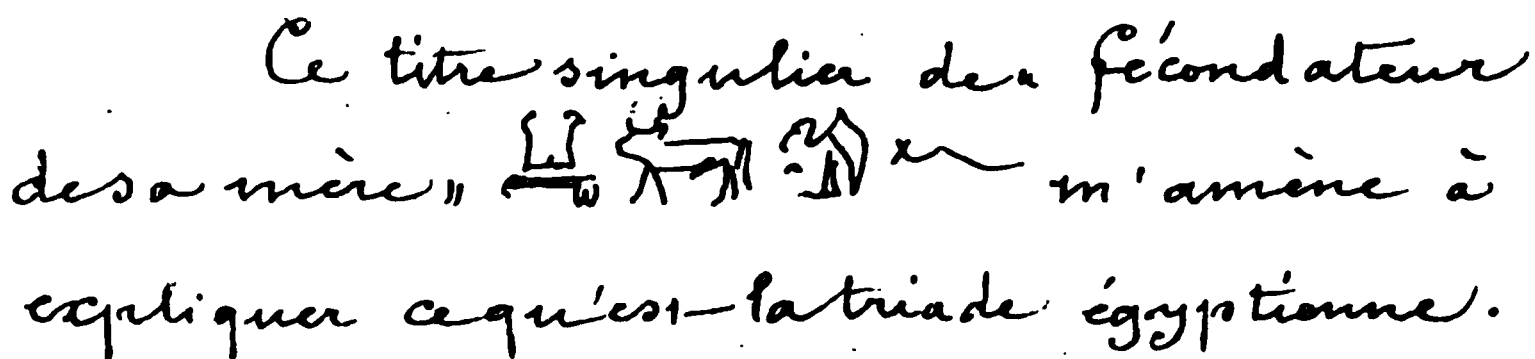 Ce titre singulier de « fécondateur
de sa mère » 𓂓 𓃒 𓅐 𓆑 m'amène à
expliquer ce qu'est la triade égyptienne.